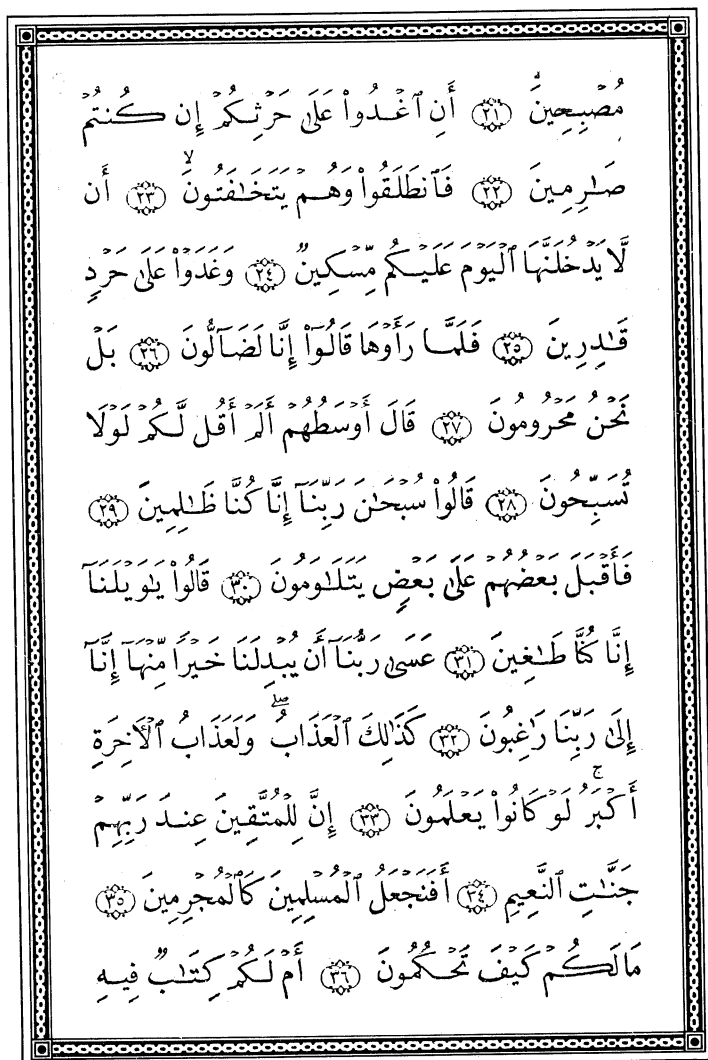 مُصۡبِحِينَ ٢١ أَنِ ٱغۡدُوا۟ عَلَىٰ حَرۡثِكُمۡ إِن كُنتُمۡ
صَٰرِمِينَ ٢٢ فَٱنطَلَقُوا۟ وَهُمۡ يَتَخَٰفَتُونَ ٢٣ أَن
لَّا يَدۡخُلَنَّهَا ٱلۡيَوۡمَ عَلَيۡكُم مِّسۡكِينٌ ٢٤ وَغَدَوۡا۟ عَلَىٰ حَرۡدٍ
قَٰدِرِينَ ٢٥ فَلَمَّا رَأَوۡهَا قَالُوٓا۟ إِنَّا لَضَآلُّونَ ٢٦ بَلۡ
نَحۡنُ مَحۡرُومُونَ ٢٧ قَالَ أَوۡسَطُهُمۡ أَلَمۡ أَقُل لَّكُمۡ لَوۡلَا
تُسَبِّحُونَ ٢٨ قَالُوا۟ سُبۡحَٰنَ رَبِّنَآ إِنَّا كُنَّا ظَٰلِمِينَ ٢٩
فَأَقۡبَلَ بَعۡضُهُمۡ عَلَىٰ بَعۡضٍ يَتَلَٰوَمُونَ ٣٠ قَالُوا۟ يَٰوَيۡلَنَآ
إِنَّا كُنَّا طَٰغِينَ ٣١ عَسَىٰ رَبُّنَآ أَن يُبۡدِلَنَا خَيۡرًا مِّنۡهَآ إِنَّآ
إِلَىٰ رَبِّنَا رَٰغِبُونَ ٣٢ كَذَٰلِكَ ٱلۡعَذَابُۖ وَلَعَذَابُ ٱلۡأَخِرَةِ
أَكۡبَرُۚ لَوۡ كَانُوا۟ يَعۡلَمُونَ ٣٣ إِنَّ لِلۡمُتَّقِينَ عِندَ رَبِّهِمۡ
جَنَّٰتِ ٱلنَّعِيمِ ٣٤ أَفَنَجۡعَلُ ٱلۡمُسۡلِمِينَ كَٱلۡمُجۡرِمِينَ ٣٥
مَا لَكُمۡ كَيۡفَ تَحۡكُمُونَ ٣٦ أَمۡ لَكُمۡ كِتَٰبٌ فِيهِ